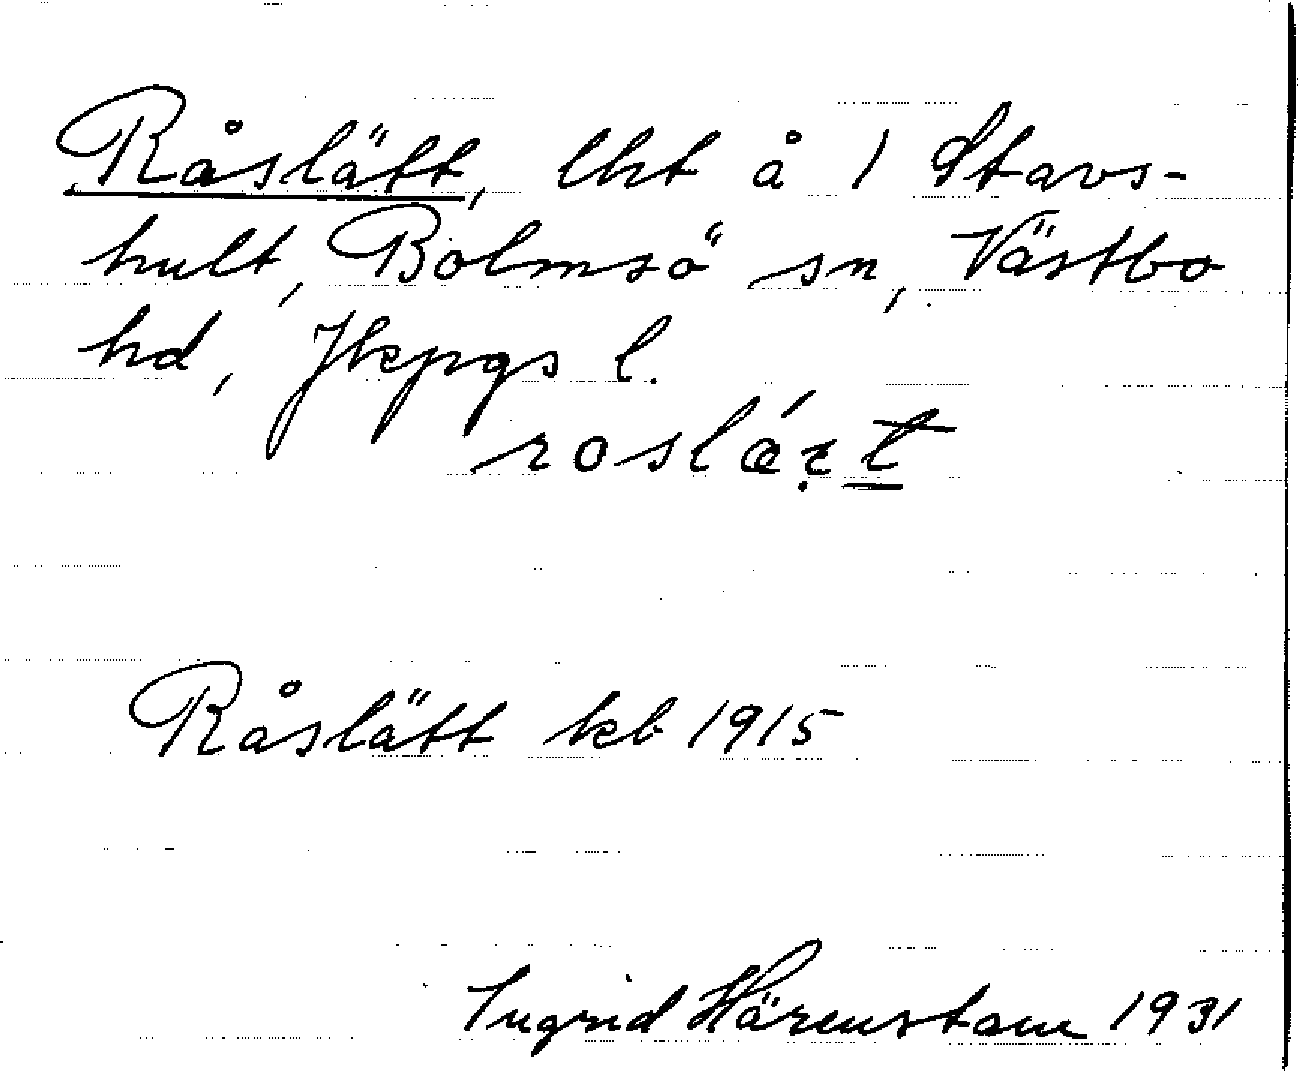 Råslätt, lht å 1 Stavs-
hult, Bolmsö sn, Västbo
hd, Jkpgs l.
Råslätt kb 1915
Ingrid Härenstam 1931